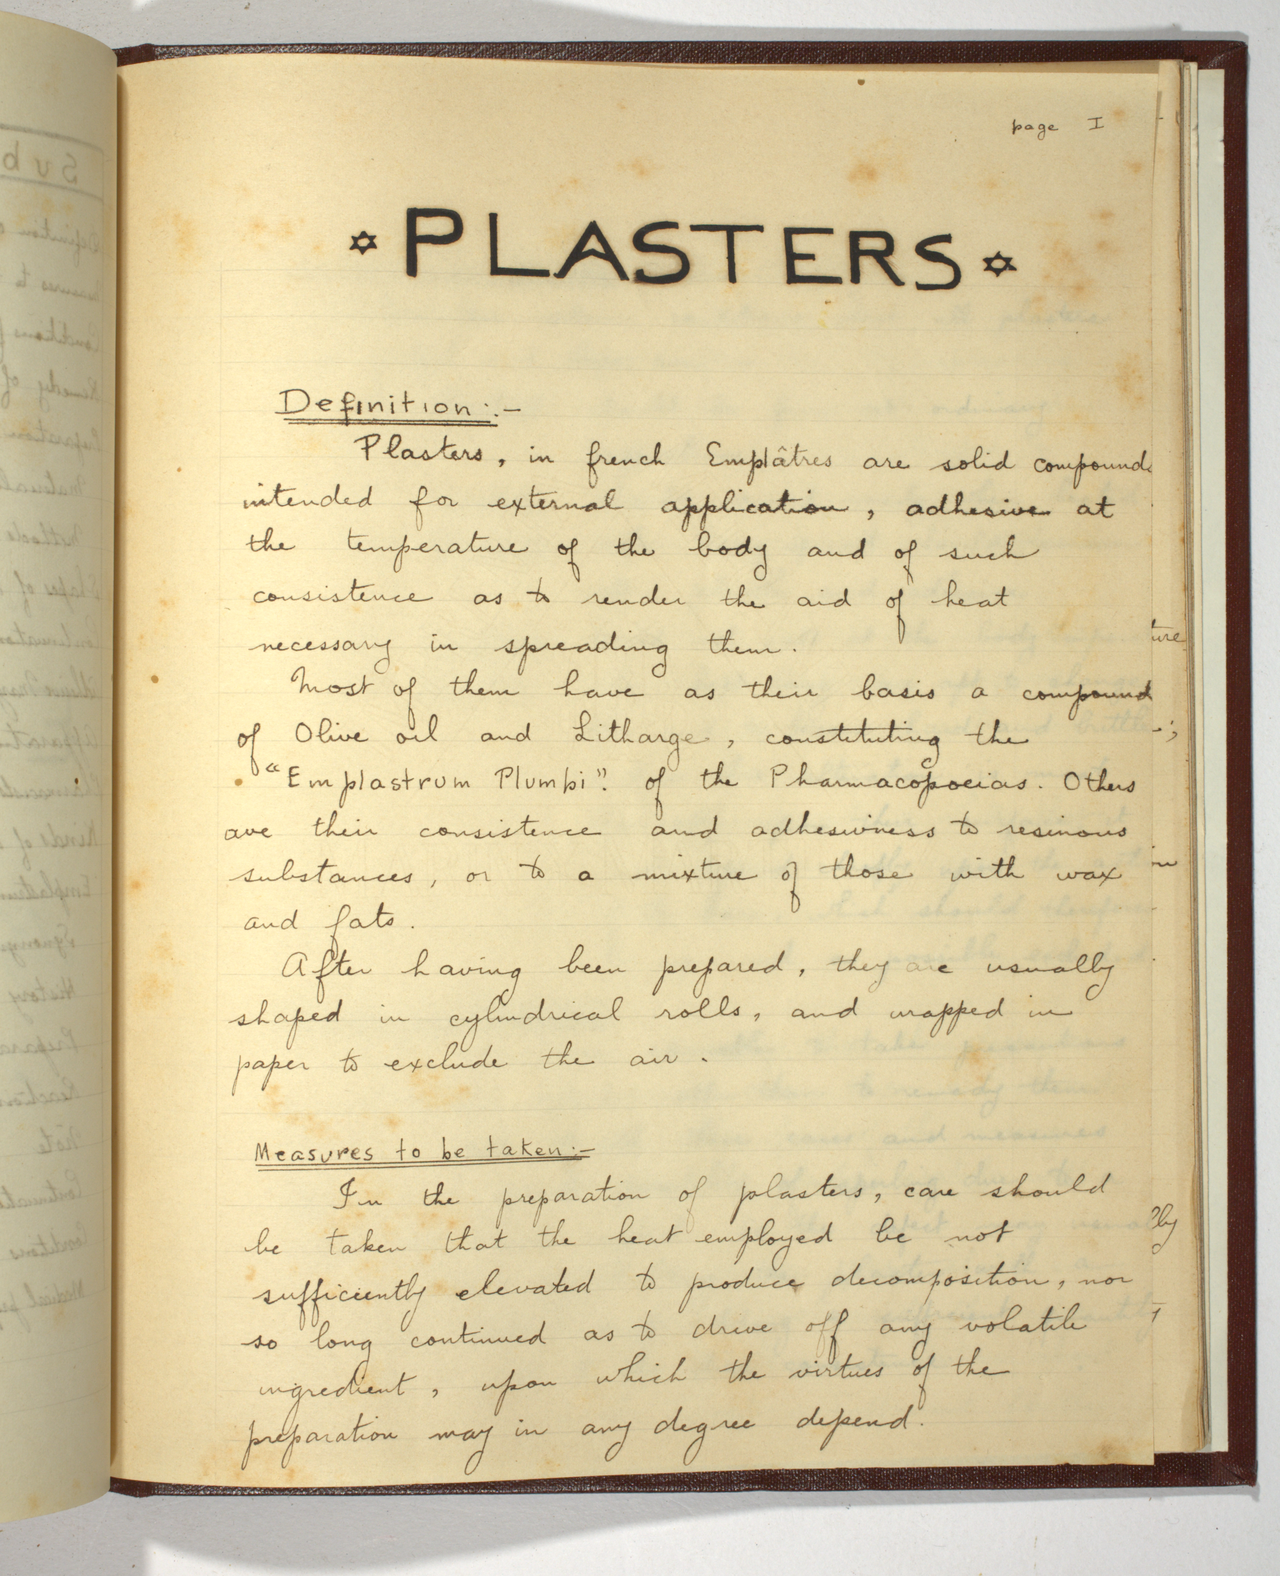 page I
✡ PLASTERS ✡
Definition :-
Plasters, in french Emplâtres are solid compounds
intended for external application, adhesive at
the temperature of the body and of such
consistence as to render the aid of heat
necessary in spreading them.
Most of them have as their basis a compound
of Olive oil and Litharge, constituting the
"Emplastrum Plumbi". of the Pharmacopoeias. Others
ave their consistence and adhesiveness to resinous
substances, or to a mixture of those with wax
and fats.
After having been prepared, they are usually
shaped in cylindrical rolls, and wrapped in
paper to exclude the air.
Measures to be taken :-
In the preparation of plasters, care should
be taken that the heat employed be not
sufficiently elevated to produce decomposition, nor
so long continued as to drive off any volatile
ingredient, upon which the virtues of the
preparation may in any degree depend.